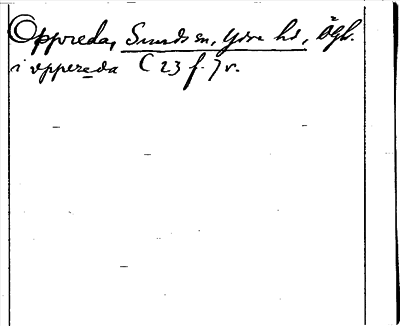 Opporeda, Sunds sn, Ydre hd, Ögl.
i uppereda C 23 f. 7 v.